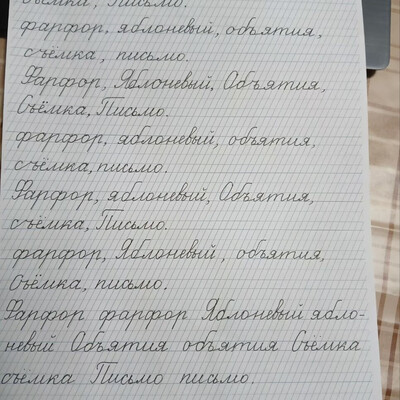 съёмка, Письмо.
фарфор, яблоневый, объятия,
съёмка, письмо.
Фарфор, Яблоневый, Объятия,
Съёмка, Письмо.
фарфор, яблоневый, объятия,
съёмка, письмо.
Фарфор, яблоневый, Объятия,
съёмка, Письмо.
фарфор, Яблоневый, объятия,
Съёмка, письмо.
Фарфор фарфор Яблоневый ябло-
невый Объятия объятия Съёмка
съёмка Письмо письмо.